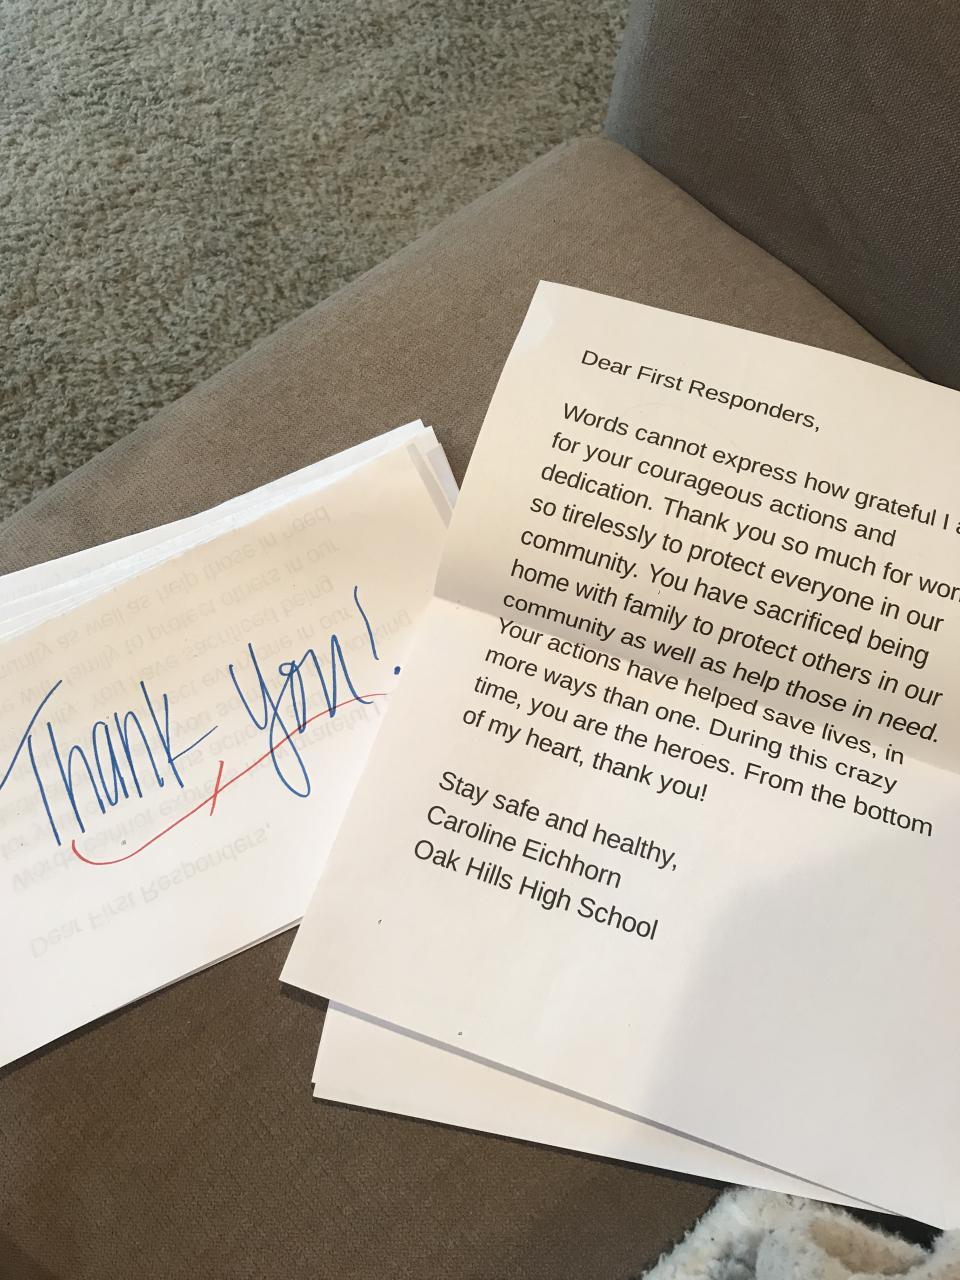 Thank You!
Dear First Responders,
Words cannot express how grateful I
for your courageous actions and
dedication. Thank you so much for
so tirelessly to protect everyone in our
community. You have sacrificed being
home with family to protect others in our
community as well as help those in need.
Your actions have helped save lives, in
more ways than one. During this crazy
time, you are the heroes. From the bottom
of my heart, thank you!
Stay safe and healthy,
Caroline Eichhorn
Oak Hills High School